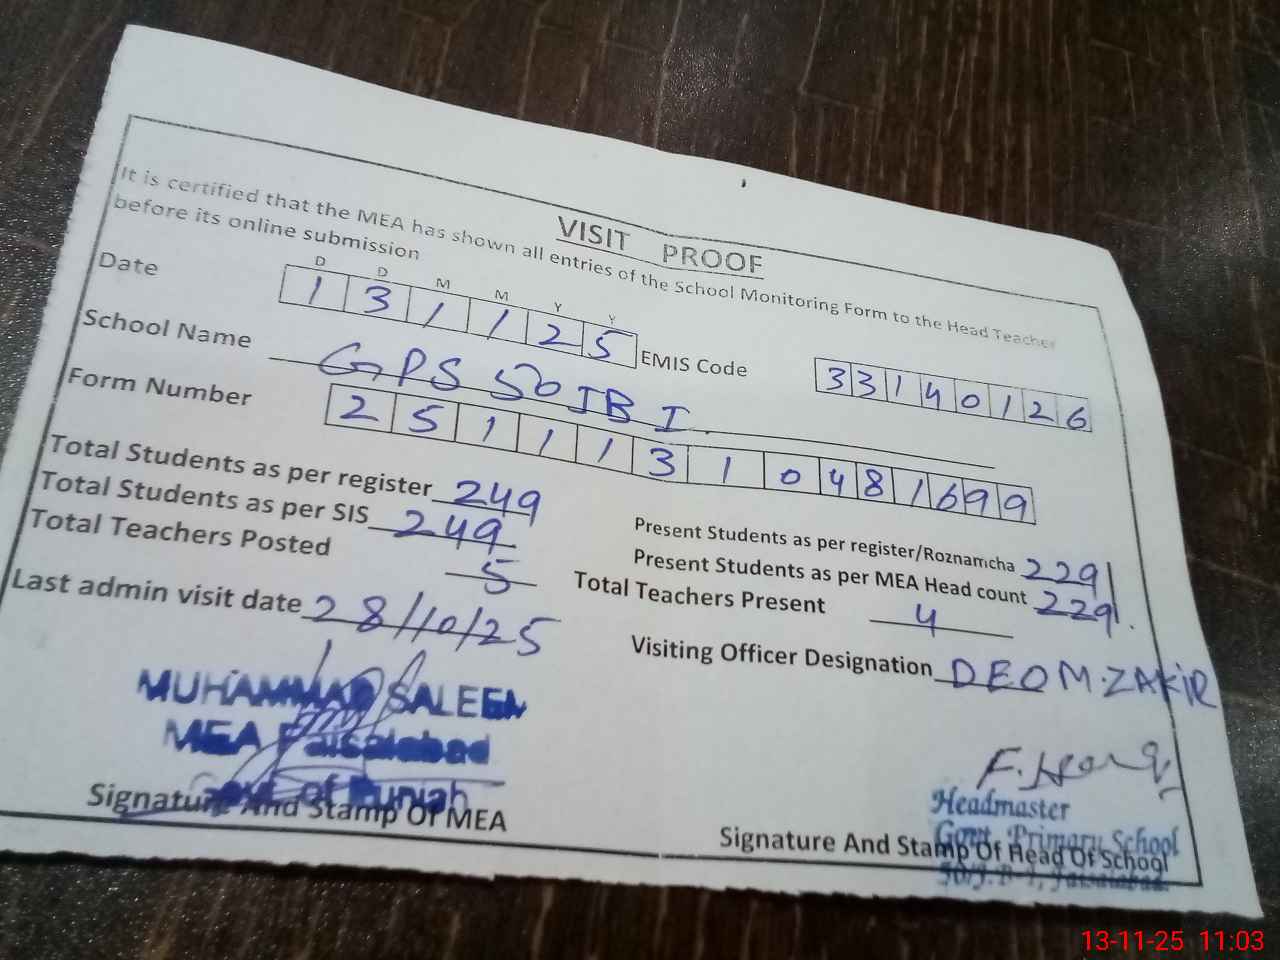 VISIT PROOF
It is certified that the MEA has shown all entries of the School Monitoring Form to the Head Teacher
before its online submission
D D M M Y Y
Date 1 3 1 1 2 5 EMIS Code 3 3 1 4 0 1 2 6
School Name GPS 50 JB I
Form Number 2 5 1 1 1 3 1 0 4 8 1 6 9 9
Total Students as per register 249 Present Students as per register/Roznamcha 229
Total Students as per SIS 249 Present Students as per MEA Head count 229
Total Teachers Posted 5 Total Teachers Present 4
Last admin visit date 28/10/25 Visiting Officer Designation DEO M.ZAKIR
MUHAMMAD SALEEM
MEA Faisalabad
Govt of Punjab
Signature And Stamp Of MEA
Headmaster
Govt. Primary School
50/J.B-1, Faisalabad.
Signature And Stamp Of Head Of School
13-11-25 11:03